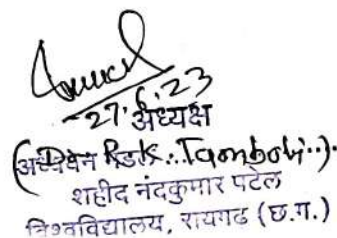 27.6.23
अध्यक्ष
(अध्ययन Dr. R.K. Tamboli..).
शहीद नंदकुमार पटेल
विश्वविद्यालय, रायगढ (छ.ग.)